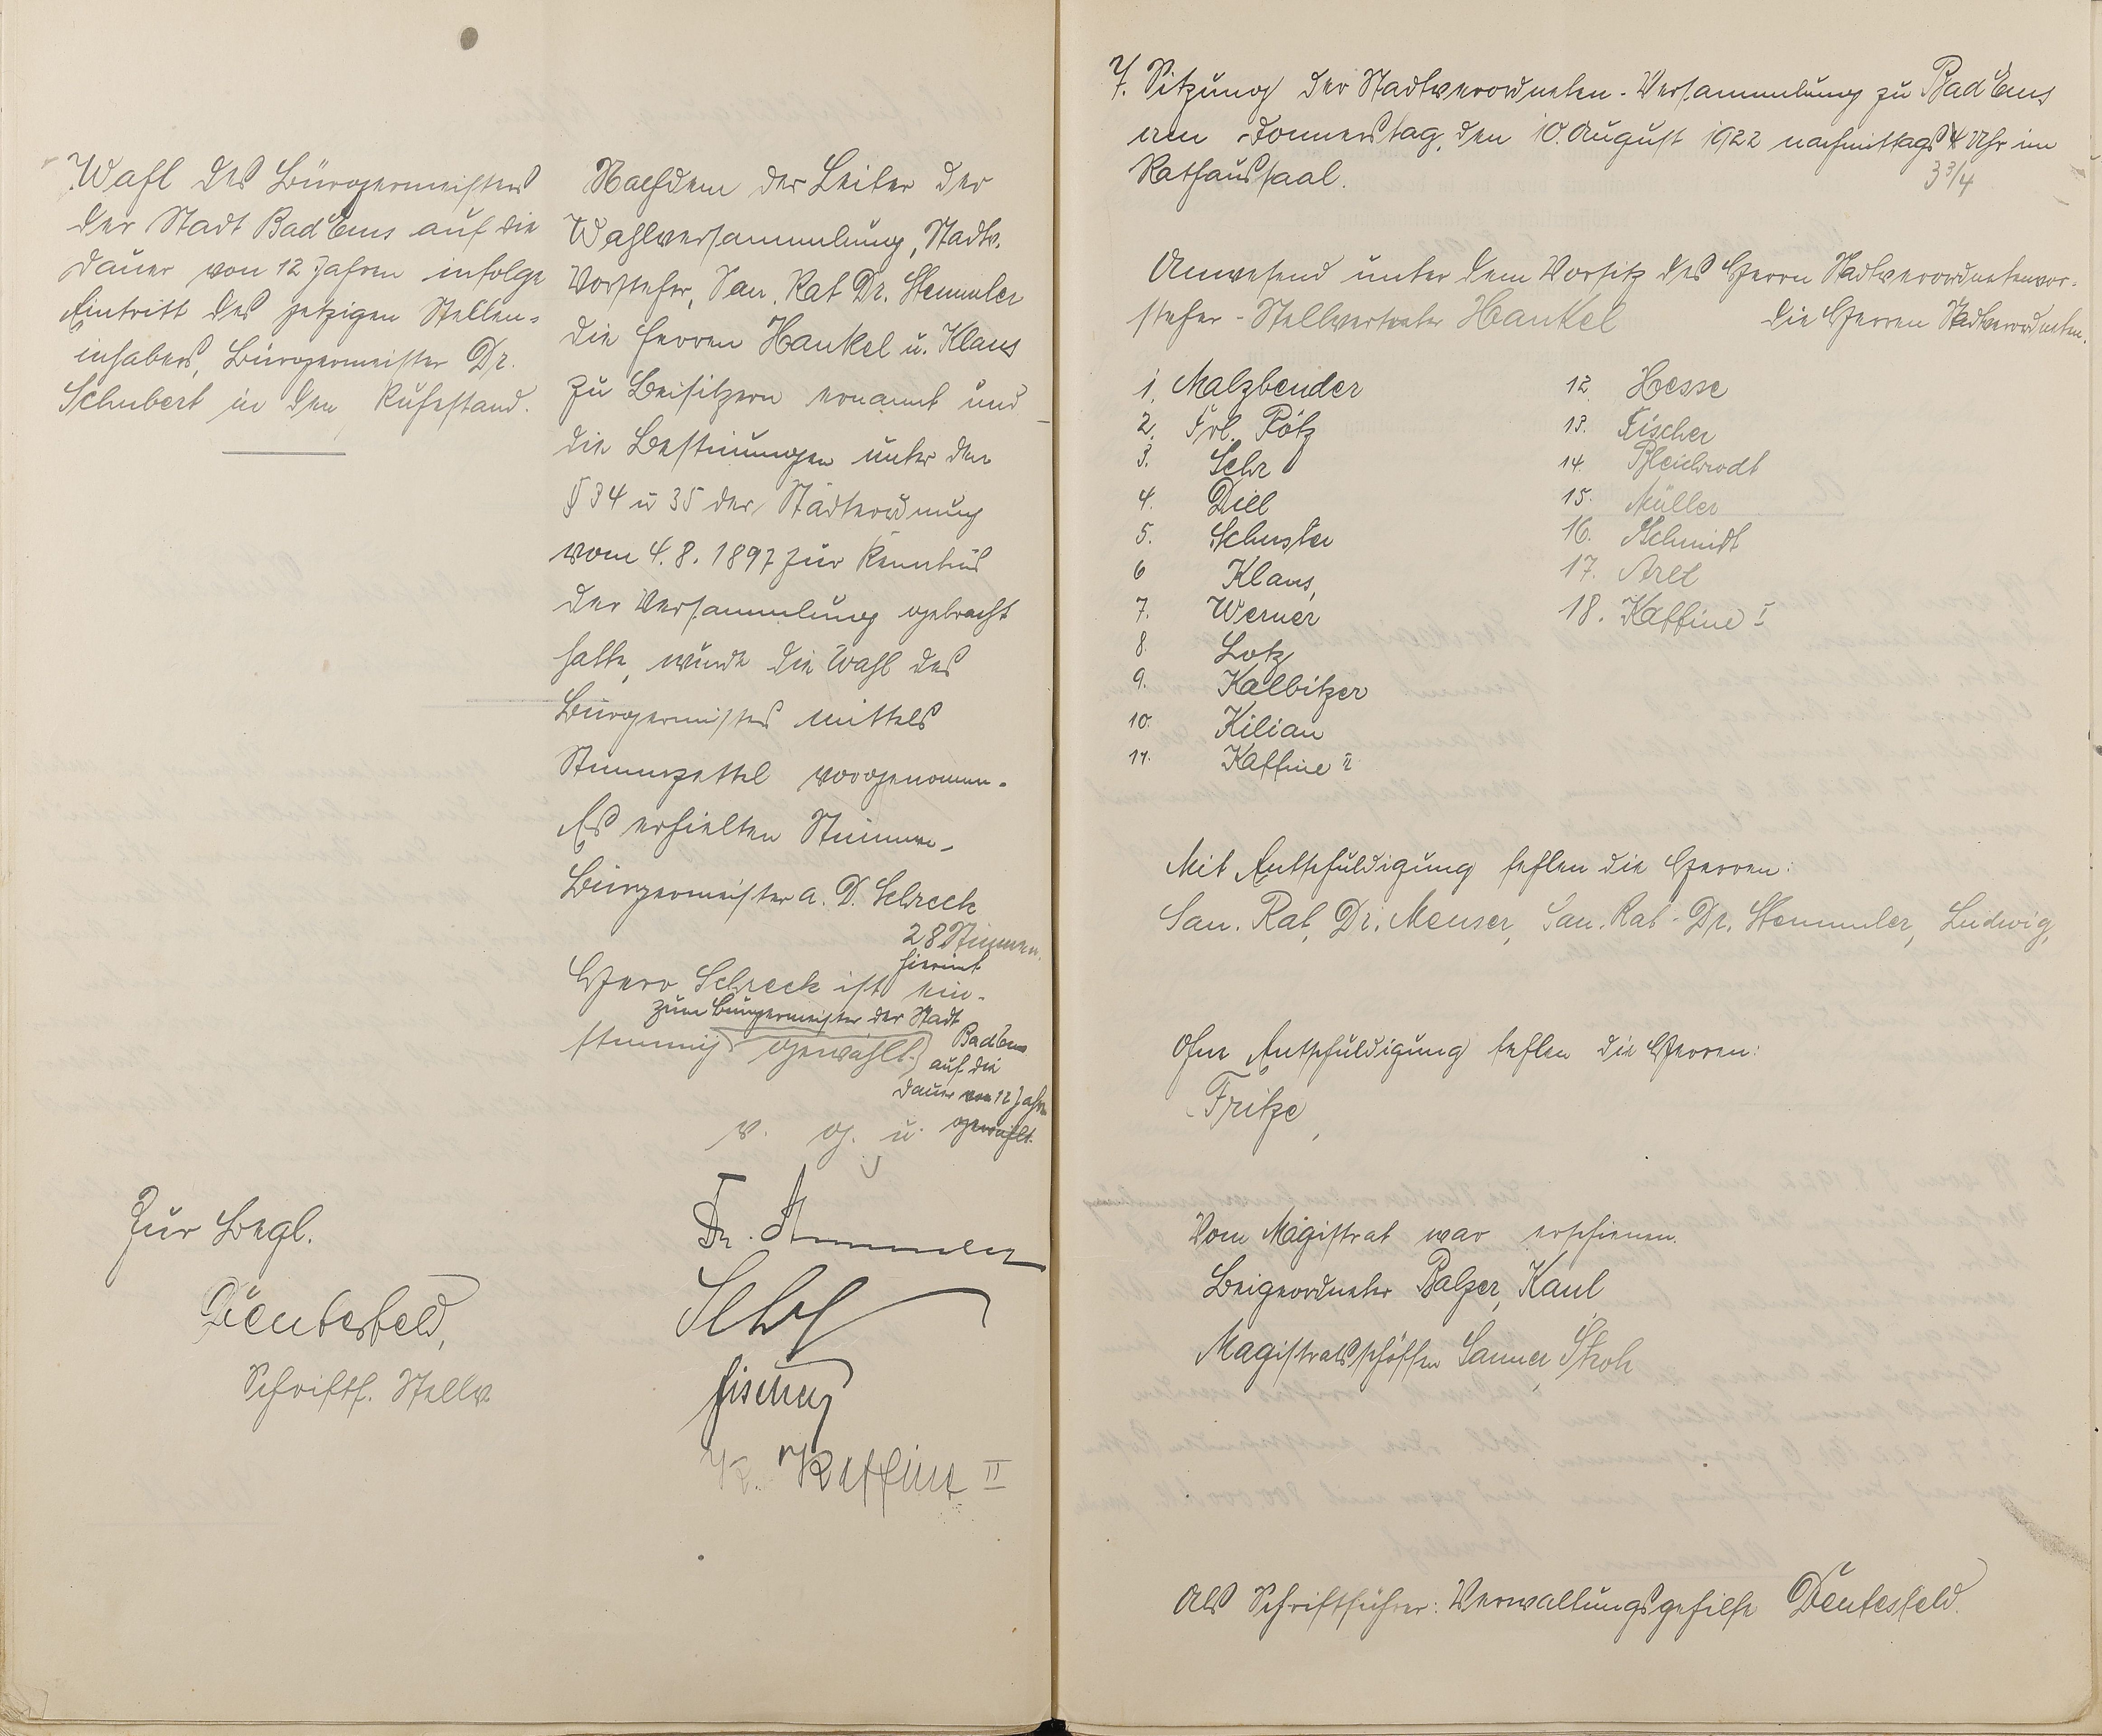 Wahl des Bürgermeisters
der Stadt Bad Ems auf die
Dauer von 12 Jahren infolge
Eintritt des jetzigen Stellen-
inhabers, Bürgermeister Dr.
Schubert in den Ruhestand.
Nachdem der Leiter der
Wahlversammlung, Stadtv.
Vorsteher, San. Rat Dr. Stemmler
die Herren Hankel u. Klaus
zu Beisitzern ernannt und
die Bestimungen unter den
§ 34 u 35 der Städteordnung
vom 4.8.1897 zur Kenntnis
der Versammlung gebracht
hatte, wurde die Wahl des
Bürgermeisters mittels
Stimmzettel vorgenommen.
Es erhielten Stimmen.
Bürgermeister a. D. Schreck
28 Stimmen.
hiermit
Herr Schreck ist ein-
zum Bürgermeister der Stadt
stimmig gewählt.
Bad Ems
auf die
Dauer von 12 Jahren
gewählt.
v. g. u.
Zur Begl.
Deutesfeld,
Schriftf. Stellv.
Dr. Stemmler
Fischer
K. Kaffine II
7. Sitzung der Stadtverordneten-Versammlung zu Bad Ems
am Donnerstag, den 10. August 1922 nachmittags 4 Uhr im
3 3/4
Rathaussaal.
Anwesend unter dem Vorsitz des Herrn Stadtverordnetenvor-
steher-Stellvertreter Hankel die Herren Stadtverordneten.
1. Malzbender
2. Frl. Pötz
3. Sehr
4. Diel
5. Schuster
6 Klaus,
7. Werner
8. Lotz
9. Kalbitzer
10. Kilian
11. Kaffine II
12. Hesse
13. Fischer
14. Bleichrodt
15. Müller
16. Schmidt
17. Arel
18. Kaffine I
Mit Entschuldigung fehlen die Herren:
San. Rat, Dr. Meuser, San. Rat Dr. Stemmler, Ludwig,
Ohne Entschuldigung fehlen die Herren:
Fritze,
Vom Magistrat war erschienen.
Beigeordneter Balzer, Kaul
Magistratsschöffen Sanner, Stroh
Als Schriftführer: Verwaltungsgehilfe Deutesfeld.